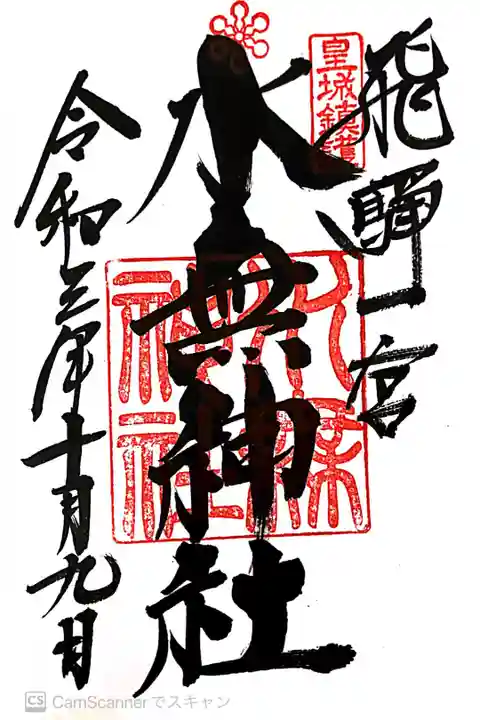 飛騨一宮
皇城鎮護
水無神社
令和三年十月九日
CS CamScannerでスキャン